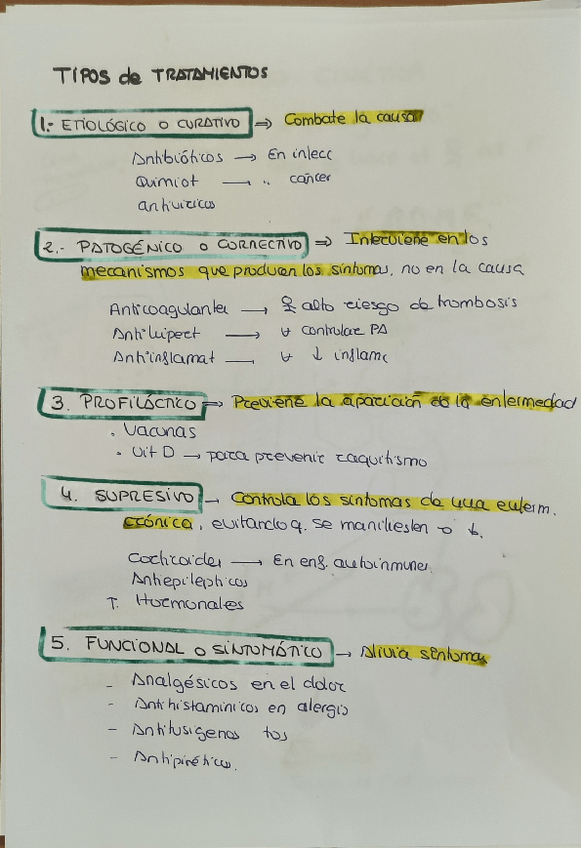 TIPOS de TRATAMIENTOS
1.- ETIOLÓGICO O CURATIVO → Combate la causa
Antibióticos → En infecc
Quimiot → " cáncer
Antivíricos
2.- PATOGÉNICO O CORRECTIVO ⇒ Interviene en los
mecanismos que producen los síntomas, no en la causa
Anticoagulantes → alto riesgo de trombosis
Antihipert → controlar PA
Antiinflamat — ↓ inflamc
3. PROFILÁCTICO → Previene la aparición de la enfermedad
• Vacunas
• Vit D → para prevenir raquitismo
4. SUPRESIVO → Controla los síntomas de una enferm.
crónica, evitando q. se manifiesten o
Corticoides → En enf. autoinmunes.
Antiepilépticos
T. Hormonales
5. FUNCIONAL O SINTOMÁTICO → Alivia síntomas
- Analgésicos en el dolor
- Antihistamínicos en alergia
- Antitusígenos tos
- Antipiréticos.